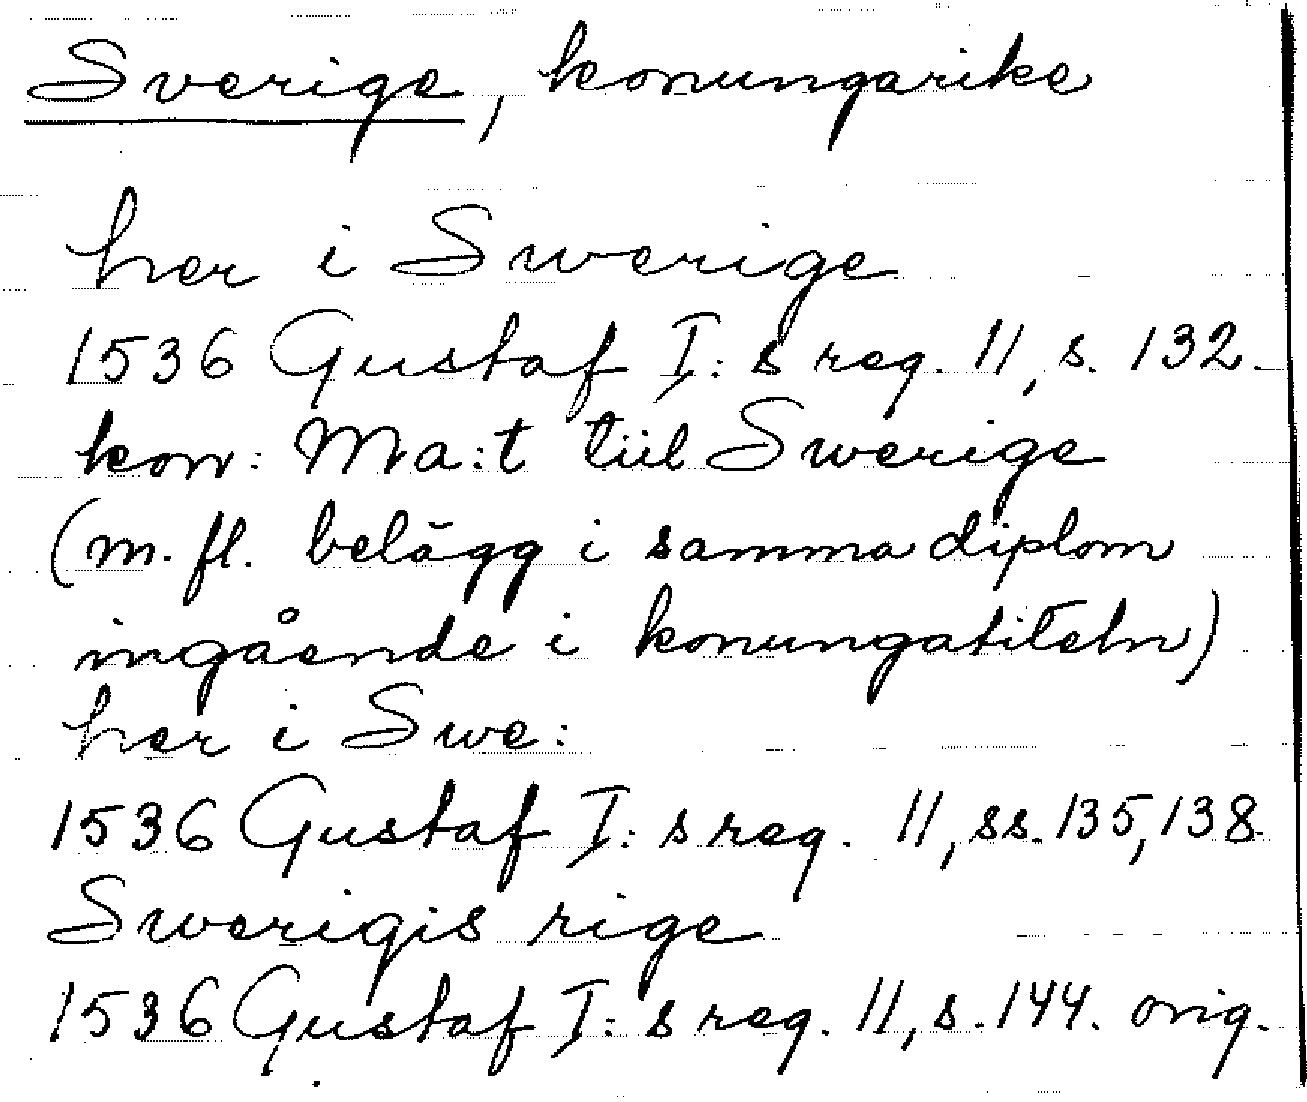 Sverige, konungarike
her i Swerige
1536 Gustaf I:s reg. 11, s. 132.
kon: Ma:t tiil Swerige
(m. fl. belägg i samma diplom
ingående i konungatiteln)
her i Swe:
1536 Gustaf I:s reg. 11, ss. 135, 138.
Swerigis rige
1536 Gustaf I:s reg. 11, s. 144. orig.